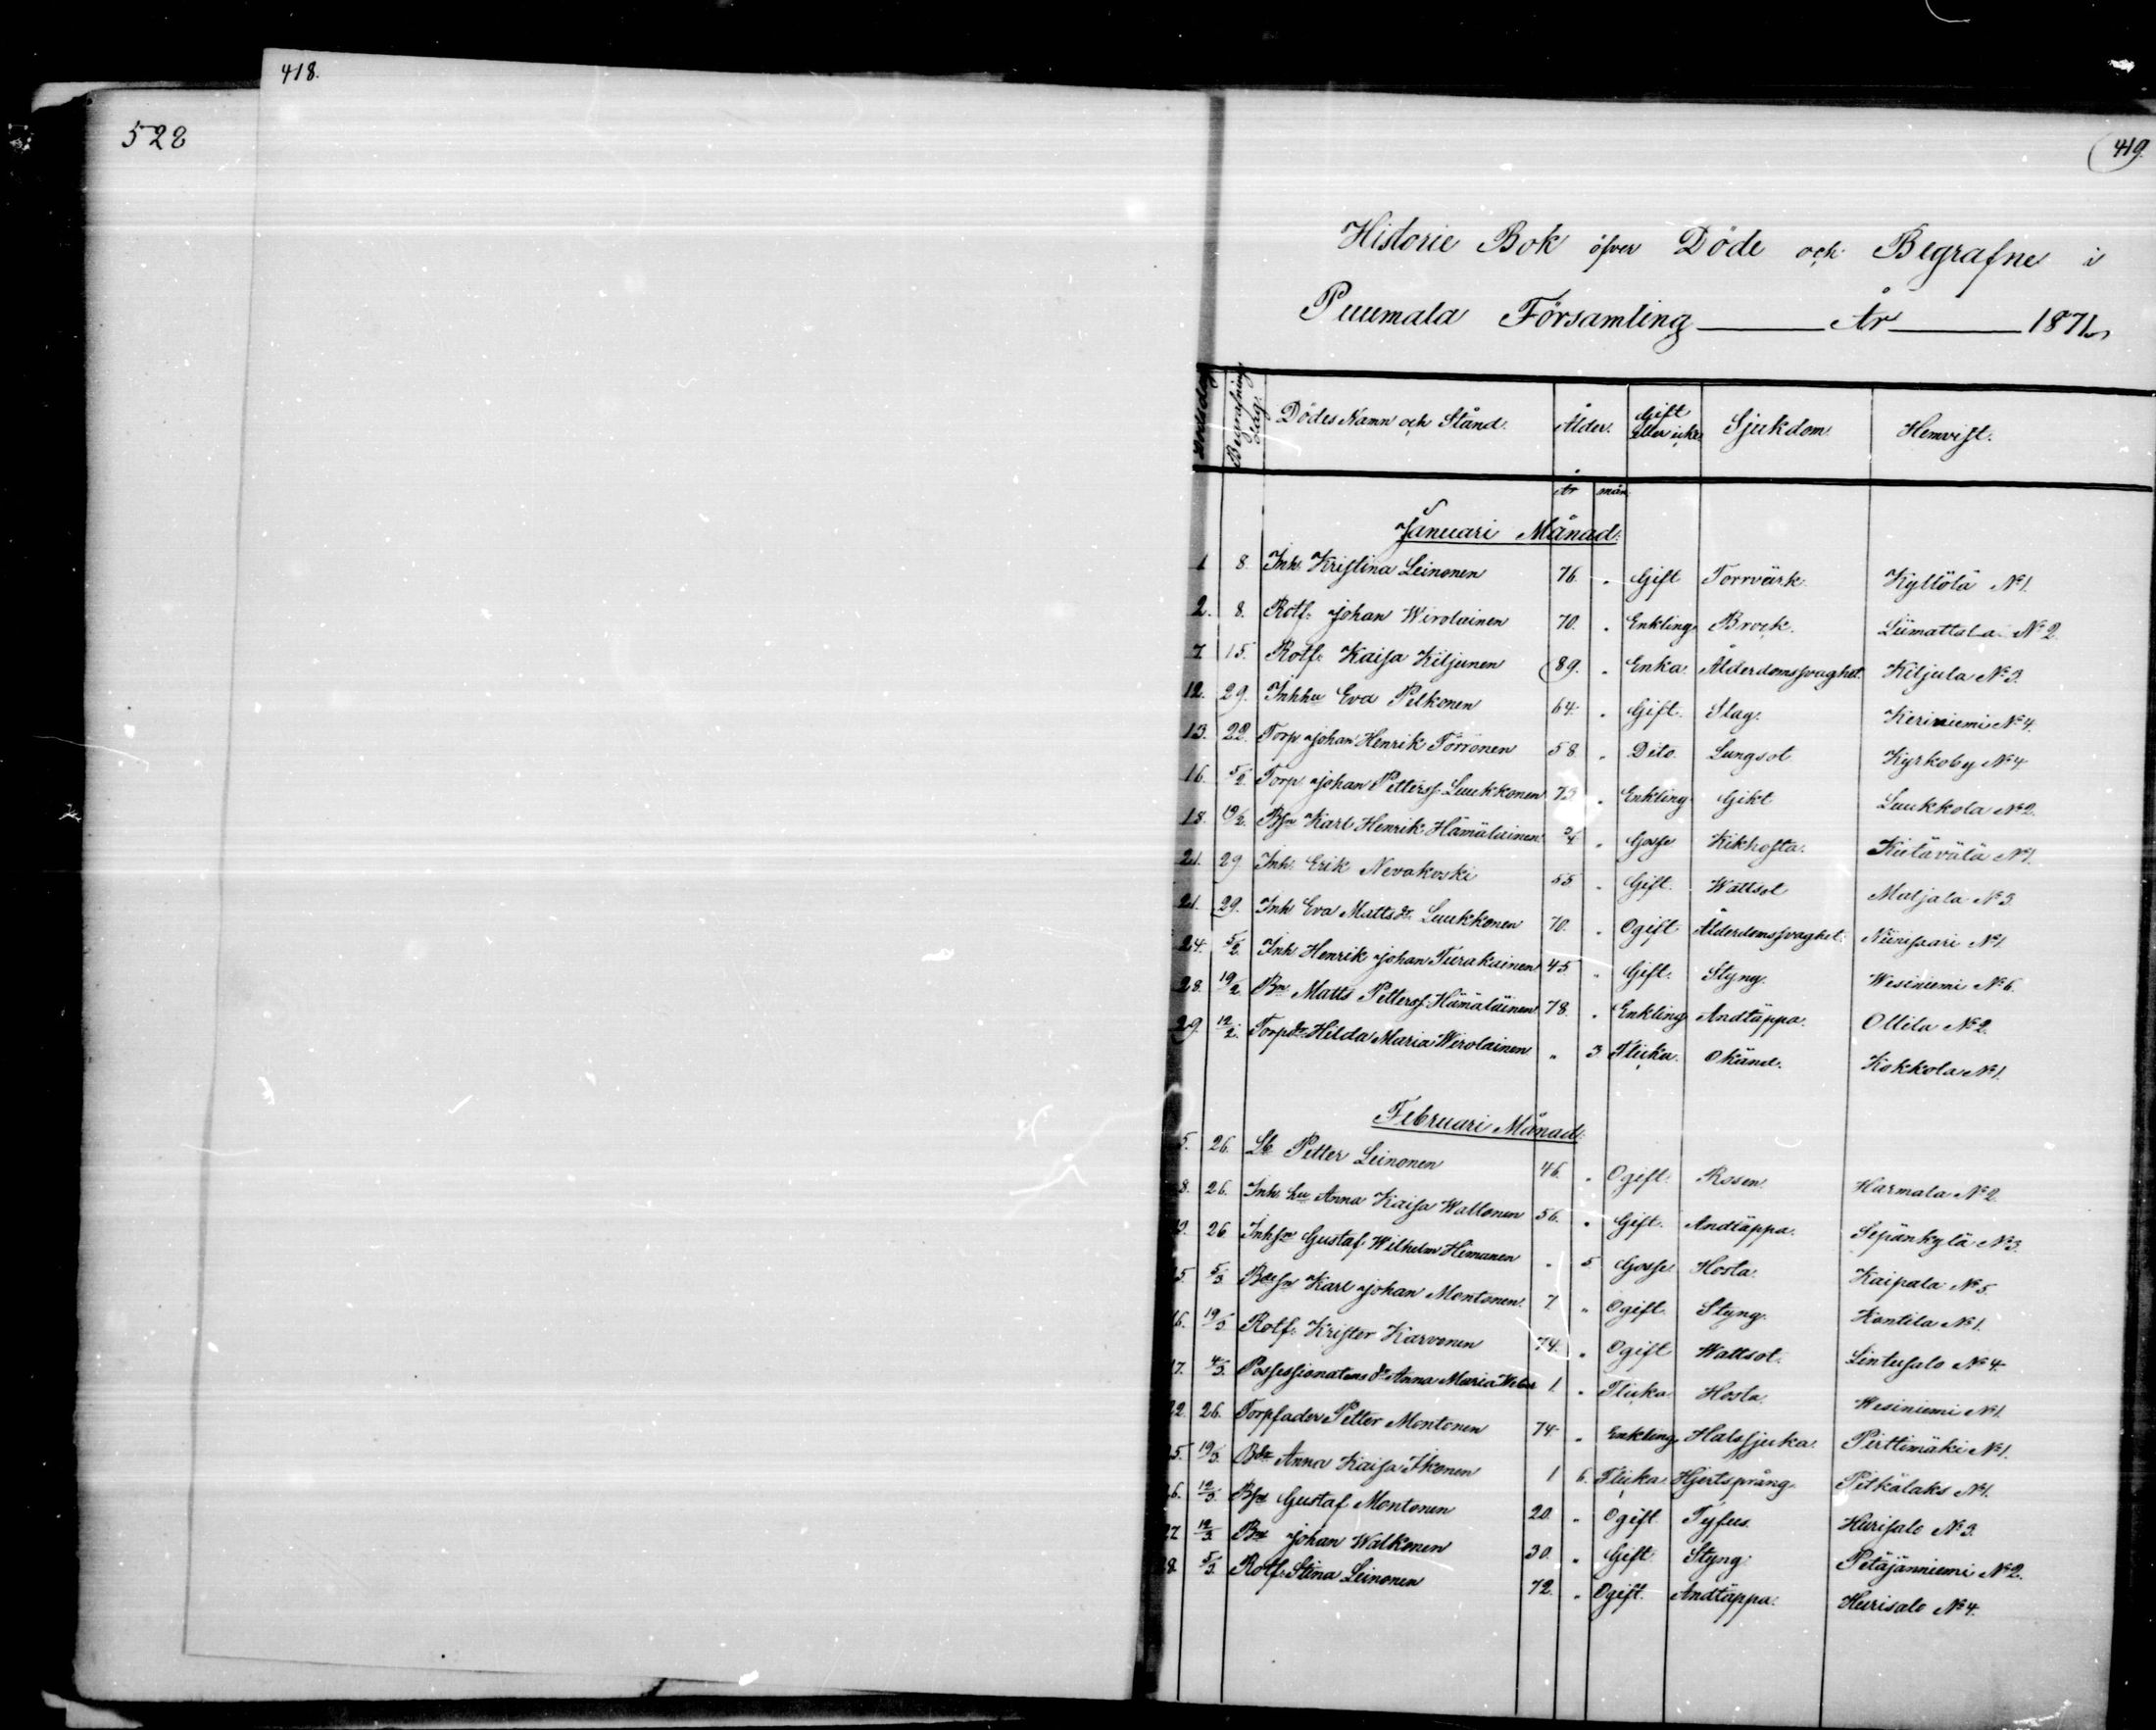 418.
528
419.
Historie Bok öfver Döde och Begrafne i
Puumala Församling År 1871
Begrafnings dag. Dödes Namn och Stånd. Ålder. Gift eller icke Sjukdom. Hemvist.
År mån.
Januari Månad.
1 8. Inh. Kristina Leinonen 76. " Gift Torrvärk Kyllölä No 1.
2. 8. Rotf. Johan Wirolainen 70. " Enkling Brock. Liimattala No 2.
7 15. Rotf. Kaisa Kiljunen 89. " Enka. Ålderdomssvaghet. Kiljula No 3.
12. 29. Inhhu Eva Pelkonen 64. " Gift. Slag. Keriniemi No 4.
13. 22. Torp Johan Henrik Törrönen 58 " Dito. Lungsot Kyrkoby No 4
16. 5/2. Torp Johan Petterss. Luukkonen 73 " Enkling Gikt Luukkola No 2.
18. 19/2. Bsn Karl Henrik Hämäläinen 3/4 " Gosse Kikhosta. Kietävälä No 1.
21. 29 Inh. Erik Nevakoski 55 " Gift. Wattsot Maljala No 3.
21. 29. Inh Eva Mattsdr. Luukkonen 70. " Ogift Ålderdomssvaghet. Niinisaari No 1.
24. 5/2. Inh Henrik Johan Turakainen 45 " Gift. Styng. Wesiniemi No 6.
28. 19/2 Bn Matts Petterss. Hämäläinen 78. " Enkling Andtäppa. Ollila No 2.
29. 12/2. Torpdr. Hilda Maria Wirolainen " 3 Flicka. Okänd. Kokkola No 1.
Februari Månad.
5. 26. Petter Leinonen 46. " Ogift. Rosen. Harmala No 2.
8. 26. Inh. hu Anna Kaisa Waltonen 56. " Gift. Andtäppa. Sepänkylä No 3.
26 Inhsn Gustaf Wilhelm Himanen " 5 Gosse Hosta. Kaipala No 5.
15. 5/3 Karl Johan Montonen. 7 " Ogift. Styng. Kontila No 1.
16. 19/3. Rotf. Krister Karvonen 74. " Ogift Wattsot. Lintusalo No 4.
17. 4/3. Possessionatens dr. Anna Maria 1. " Flicka. Hosta. Wesiniemi No 1.
22. 26. Torpfader Petter Montonen 74. " Enkling Halssjuka. Pirttimäki No 1.
25. 19/3. Bdr Anna Kaisa Ikonen 1 6. Flicka Hjertsprång. Pitkälaks No 1.
26. 12/3. Bsn Gustaf Montonen 20. " Ogift Tyfus. Hurisalo No 3.
27 12/3. Bn Johan Walkonen 30. " Gift Styng. Petäjänniemi No 2.
28 5/3. Rotf. Stina Leinonen 72. " Ogift. Andtäppa. Hurisalo No 4.